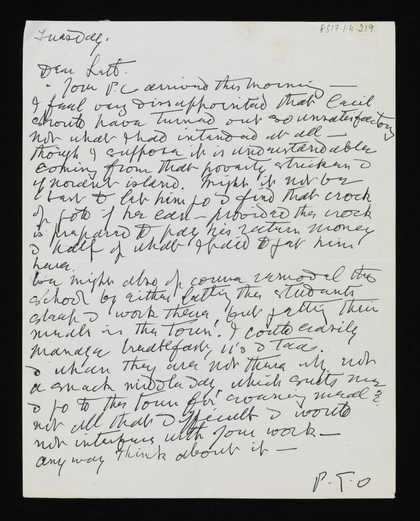 8517.1.4.219
Tuesday.
Dear Lett.
Your P.C arrived this morning —
I feel very dissappointed that Cecil
should have turned out so unsatisfactory
not what I had intended at all —
though I suppose it is understandable
coming from that poverty stricken &
ignorant island. Might it not be
best to let him go & find that crock
of gold if he can — provided the crock
is prepared to pay his return money
& half of what I paid to get him
here.
We might also of course remodel the
school by either letting the students
sleep & work there, but getting their
meals in the town. I could easily
manage breakfasts, it's & teas.
& when they are not there why not
a snack midday, which suits me
& go to the town for evening meal?
not all that difficult & would
not interfere with your work —
any way think about it —
P.T.O